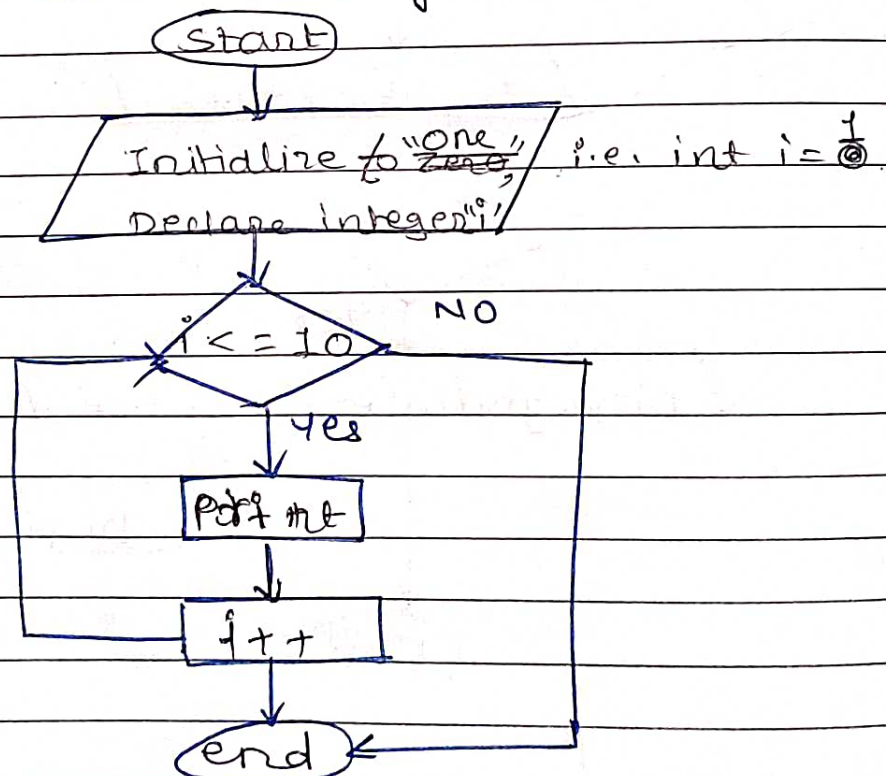 Start
Initialize to "One", i.e. int i = 1
Declare integer "i"
NO
i < = 10
Yes
Print
i + +
end